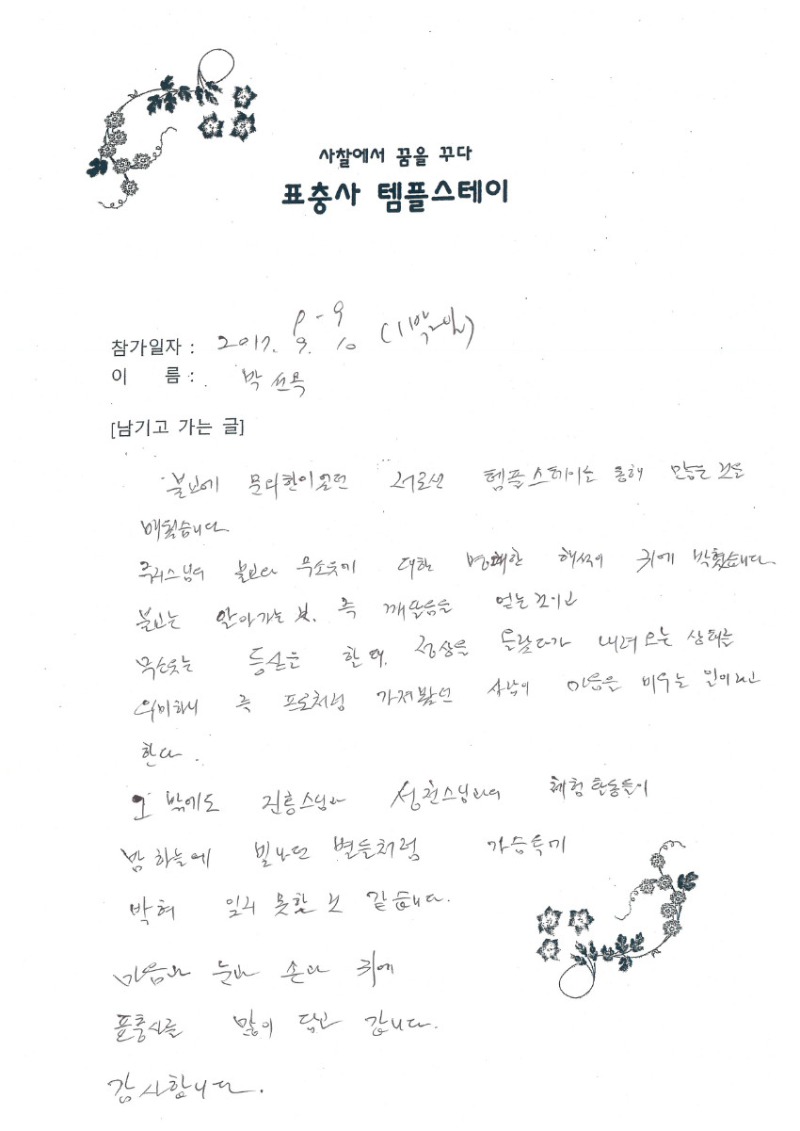 사찰에서 꿈을 꾸다
표충사 템플스테이
9 - 9
참가일자 : 2017. 9. 10 (1박2일)
이 름 : 박선옥
[남기고 가는 글]
불교에 문외한이였던 저로선 템플스테이를 통해 많은 것을
배웠습니다
주지스님의 불교와 무소유에 대한 명쾌한 해석이 귀에 박혔습니다.
불교는 알아가는 것. 즉 깨달음을 얻는 것이고
무소유는 등산을 할 때, 정상을 올랐다가 내려오는 상태를
의미하니 즉 프로처럼 가져봤던 사람이 마음을 비우는 일이라고
한다.
그 밖에도 진흥스님과 성천스님과의 체험활동들이
밤하늘에 빛나던 별들처럼 가슴속에
박혀 잊지 못할 것 같습니다.
마음과 눈과 손과 귀에
표충사를 많이 담고 갑니다.
감사합니다.